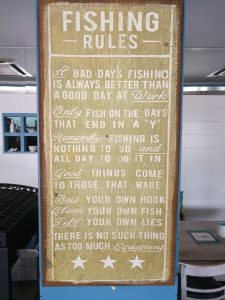 FISHING
RULES
A BAD DAYS FISHING
IS ALWAYS BETTER THAN
A GOOD DAY AT Work
Only FISH ON THE DAYS
THAT END IN A 'Y'
Remember FISHING IS
NOTHING TO DO and
ALL DAY TO DO IT IN
Good THINGS COME
TO THOSE THAT WADE
Bait YOUR OWN HOOK
Clean YOUR OWN FISH
Tell YOUR OWN LIES
THERE IS NO SUCH THING
AS TOO MUCH Equipment